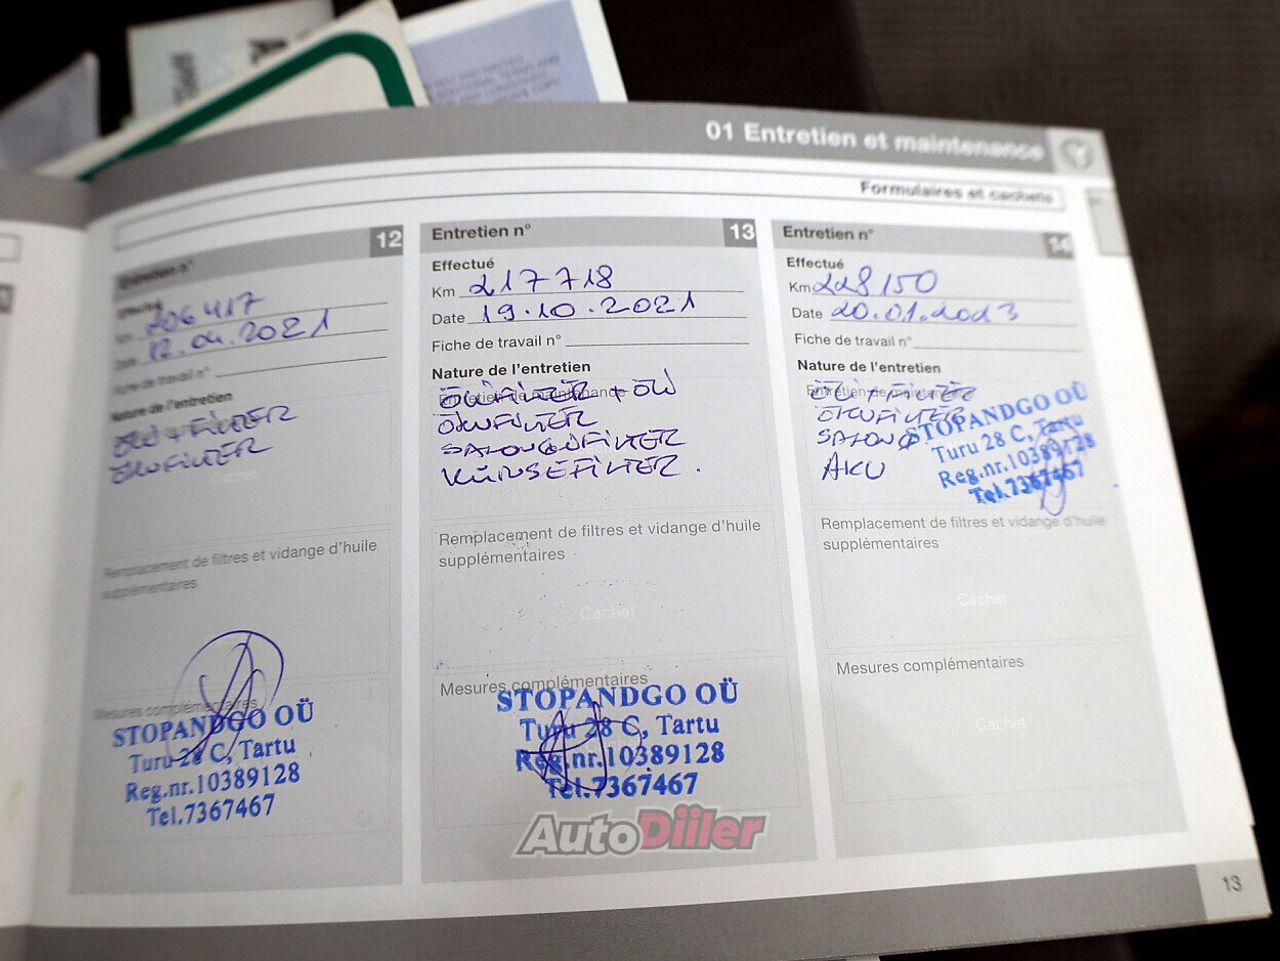 01 Entretien et maintenance
Formulaires et cachets
Entretien n° 12
Effectué
Km 206417
Date 12.04.2021
Fiche de travail n°
Nature de l'entretien
ÕLI + FILTER
ÕHUFILTER
Remplacement de filtres et vidange d'huile
supplémentaires
Mesures complémentaires
STOPANDGO OÜ
Turu 28 C, Tartu
Reg.nr.10389128
Tel.7367467
Entretien n° 13
Effectué
Km 217718
Date 19.10.2021
Fiche de travail n°
Nature de l'entretien
Entretien de maintenance
ÕLIFILTER + ÕLI
ÕHUFILTER
SALONGIFILTER
KÜTUSEFILTER.
Remplacement de filtres et vidange d'huile
supplémentaires
Cachet
Mesures complémentaires
STOPANDGO OÜ
Turu 28 C, Tartu
Reg.nr.10389128
Tel.7367467
Entretien n° 14
Effectué
Km 228150
Date 20.01.2023
Fiche de travail n°
Nature de l'entretien
ÕLI + FILTER
ÕHUFILTER
AKU
STOPANDGO OÜ
Turu 28 C, Tartu
Reg.nr.10389128
Tel.7367467
Remplacement de filtres et vidange d'huile
supplémentaires
Cachet
Mesures complémentaires
Cachet
AutoDiiler
13